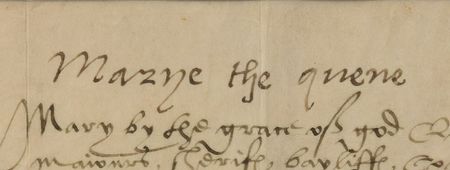 Marye the quene
Mary by the grace of god Q
maiours, sheriffs, bayliffs,